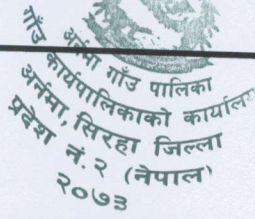 अर्नमा गाँउ पालिका
गाँउ कार्यपालिकाको कार्यालय
अर्नमा, सिरहा जिल्ला
प्रदेश नं. २ (नेपाल)
२०७३